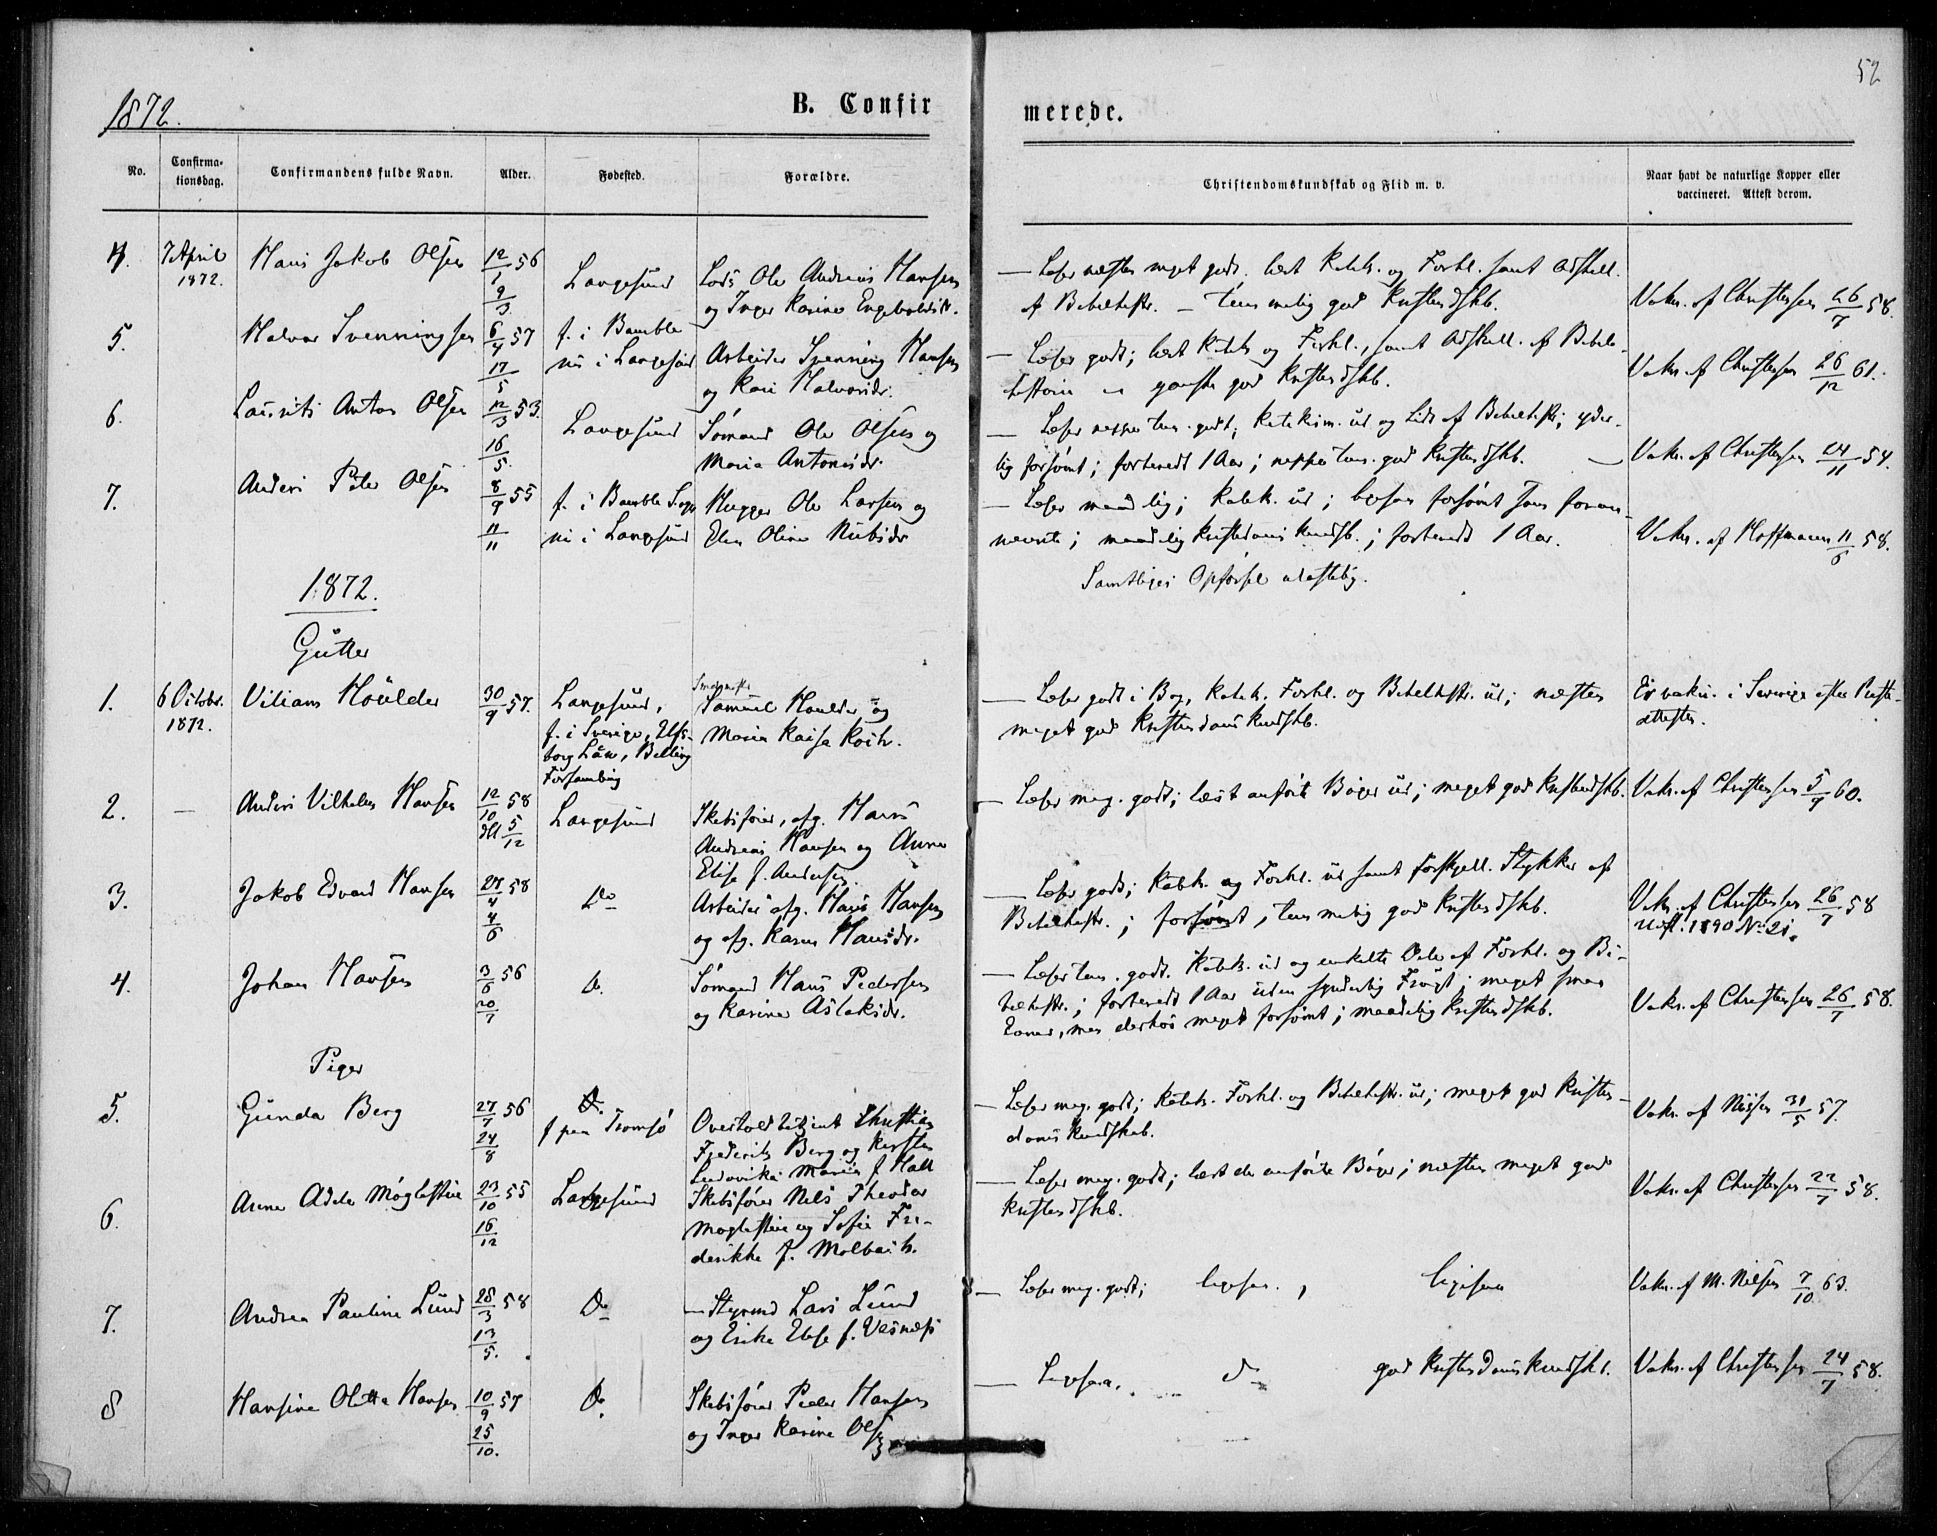 52
1872.
B. Confirmerede.
No.
Confirma-
tionsdag.
Confirmandens fulde Navn.
Alder.
Fødested.
Forældre.
Christendomskundskab og Flid m. v.
Naar havt de naturlige Kopper eller
vaccineret. Attest derom.
4. 7 April 1872. Hans Jakob Olsen 12/1 56 9/3 Langesund Lods Ole Andreas Hansen
og Inger Karine Engeboldsdr.
— Læser næsten meget godt. læst Katek. og Forkl. samt adskill.
af Bibelhistr. — temmelig god Kristendskb.
Vakr. af Christensen 26/7 58.
5. Halvor Svenningsen 6/4 57 17/5 f. i Bamble
nu i Langesund Arbeider Svenning Hansen
og Kari Halvorsdr.
— Læser godt; læst Katek og Forkl., samt Adskill. af Bibel-
historie — ganske god Kristendskb.
Vakr. af Christensen 26/12 61.
6. Laurits Anton Olsen 12/3 53. 16/5. Langesund Sømand Ole Olsen og
Maria Antonisdr.
— Læser neppe tem. godt; Katekism. ud og Lidt af Bibelhistr; yder-
lig forsømt; forberedt 1 Aar; neppe tem. god Kristendskb. —
Vakr. af Christensen 24/11 54.
7. Anders Peter Olsen 8/9 55 11/11 f. i Bamble Sogn
nu i Langesund Hugger Ole Larsen og
Elen Oline Nubsdr
— Læser maadelig; Katek. ud; ligesaa forsømt som foran-
nævnte; maadelig Kristendoms kundsk.; forberedt 1 Aar.
Vakr. af Hoffmann 11/6 58.
Samtliges Opførsel ulastelig.
1872.
Gutter
1. 6 Octobr. 1872. Viliam Houlder 30/9 57. Langesund,
f. i Sverige, Elfs-
borg Län, Belling
Forsamling
Samuel Houlder og
Maria Kaisa Koch.
— Læser godt i Bog, Katek. Forkl. og Bibelhistr. ud; næsten
meget god Kristendoms kundskb.
Er vakn. i Sverige efter Præste-
attesten.
2. — Anders Vilhelm Hansen 12/10 58 dbt 5/12 Langesund Skibsfører, afg. Hans
Andreas Hansen og Anne
Elise f. Andersen.
— Læser meg. godt; læst anførte Bøger ud; meget god Kristendskb.
Vakr. af Christensen 5/9 60.
3. Jakob Edvard Hansen 27/4 58 4/6 Do Arbeider afg. Hans Hansen
og afg. Karen Hansdr.
— Læser godt; Katek. og Forkl. ud samt forskjell. Stykker af
Bibelhistr.; forsømt, temmelig god Kristendskb.
Vakr. af Christensen 26/7 58
Udfl. 1890 No 21.
4. Johan Hansen 3/6 56 20/7 Do. Sømand Hans Pedersen
og Karine Aslaksdr.
— Læser tem. godt. Katek. ud og enkelte Dele af Forkl. og Bi-
belhistr.; forberedt 1 Aar uden synderlig Frugt; meget smaa
Evner, men derhos meget forsømt; maadelig Kristendskb.
Vakr. af Christensen 26/7 58.
Piger
5. Gunda Berg 27/7 56 24/8 Do.
f paa Tromsø Overtoldbetjent Christian
Frederik Berg og Kirsten
Ludovika Maria f. Hall
— Læser meg. godt; Katek. Forkl. og Bibelhistr. ud; meget god Kristen-
doms kundskab.
Vakr. af Nissen 31/5 57.
6. Anna Adele Møglestue 23/10 55 16/12 Langesund Skibsfører Nils Theodor
Møglestue og Sofie Fre-
derikke f. Molbach.
— Læser meg. godt; læst de anførte Bøger; næsten meget god
Kristendskb.
Vakr. af Christensen 22/7 58.
7. Andrea Pauline Lund 28/3 58 13/5. Do — Styrmd Lars Lund
og Erika Else f. Vesnæs
— Læser meg. godt; ligesaa, ligesaa
Vakr. af M. Nilsen 7/10 63.
8 Hansine Olitta Hansen 10/9 57 25/10. Do. Skibsfører Peder Hansen
og Inger Karine Olsen
— Ligesaa. do god Kristendoms kundskb.
Vakr. af Christensen 24/7 58.